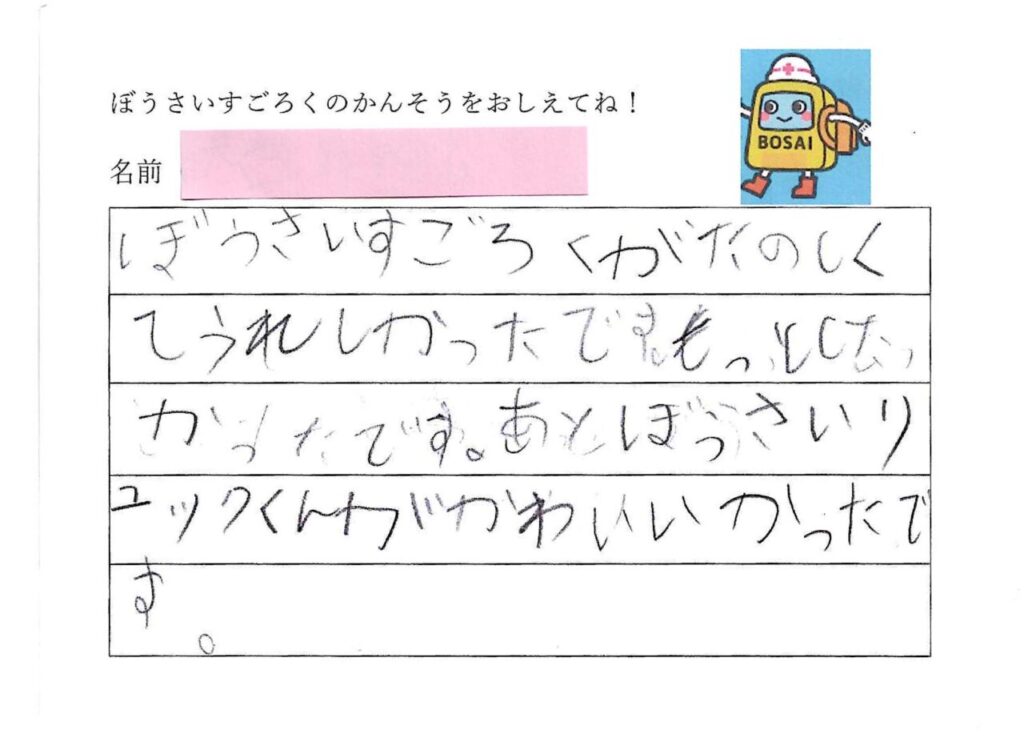 ぼうさいすごろくのかんそうをおしえてね！
名前
BOSAI
ぼうさいすごろくがたのしく
てうれしかったです。もっとした
かったです。あとぼうさいリ
ュックくんがかわいいかったで
す。